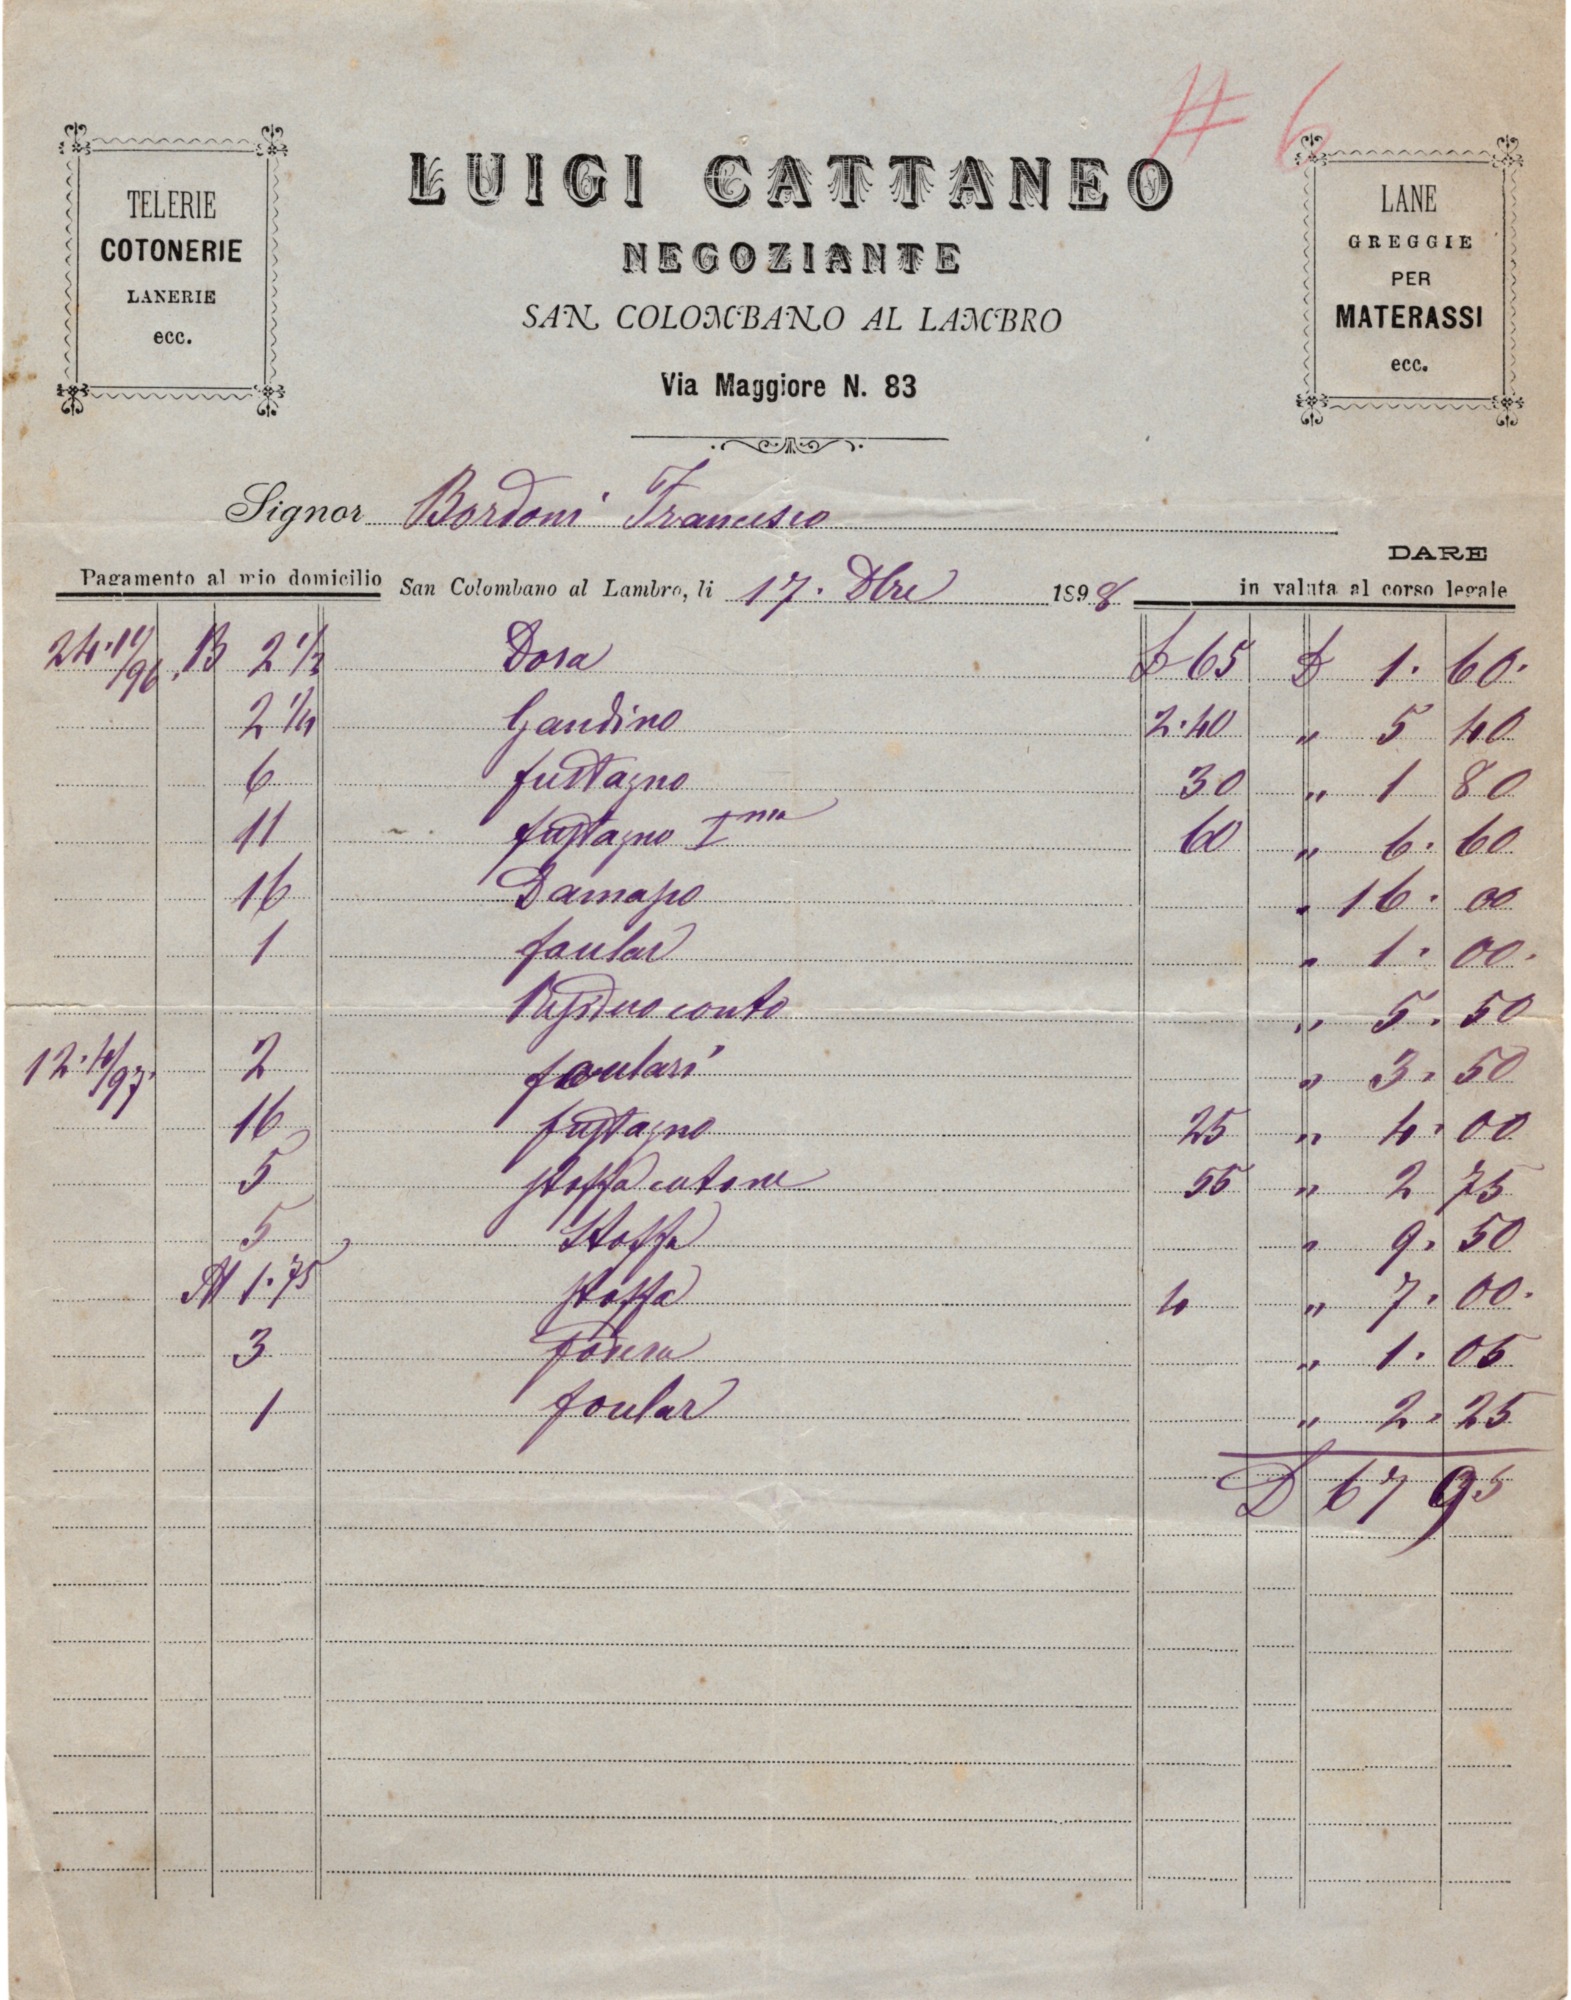 # 6
TELERIE
COTONERIE
LANERIE
ecc.
LUIGI CATTANEO
NEGOZIANTE
SAN COLOMBANO AL LAMBRO
Via Maggiore N. 83
LANE
GREGGIE
PER
MATERASSI
ecc.
Signor Bordoni Francesco
DARE
Pagamento al mio domicilio San Colombano al Lambro, li 17. Dbre 1898 in valuta al corso legale
24. 11/96. B 2 1/2 Dora £ 65 £ 1. 60.
2 1/4 Gandino 2.40 " 5 40
6 fustagno 30 " 1 80
11 fustagno Ima 60 " 6. 60
16 Damasso " 16. 00
1 foular " 1. 00.
conto " 5. 50
12. 4/97. 2 foulari " 3. 50
16 fustagno 25 " 4. 00
5 stoffa cotone 55 " 2 75
5 Stoffa " 9. 50
M 1.75 stoffa 4 " 7. 00.
3 fodera " 1. 05
1 foular " 2. 25
£ 67 95